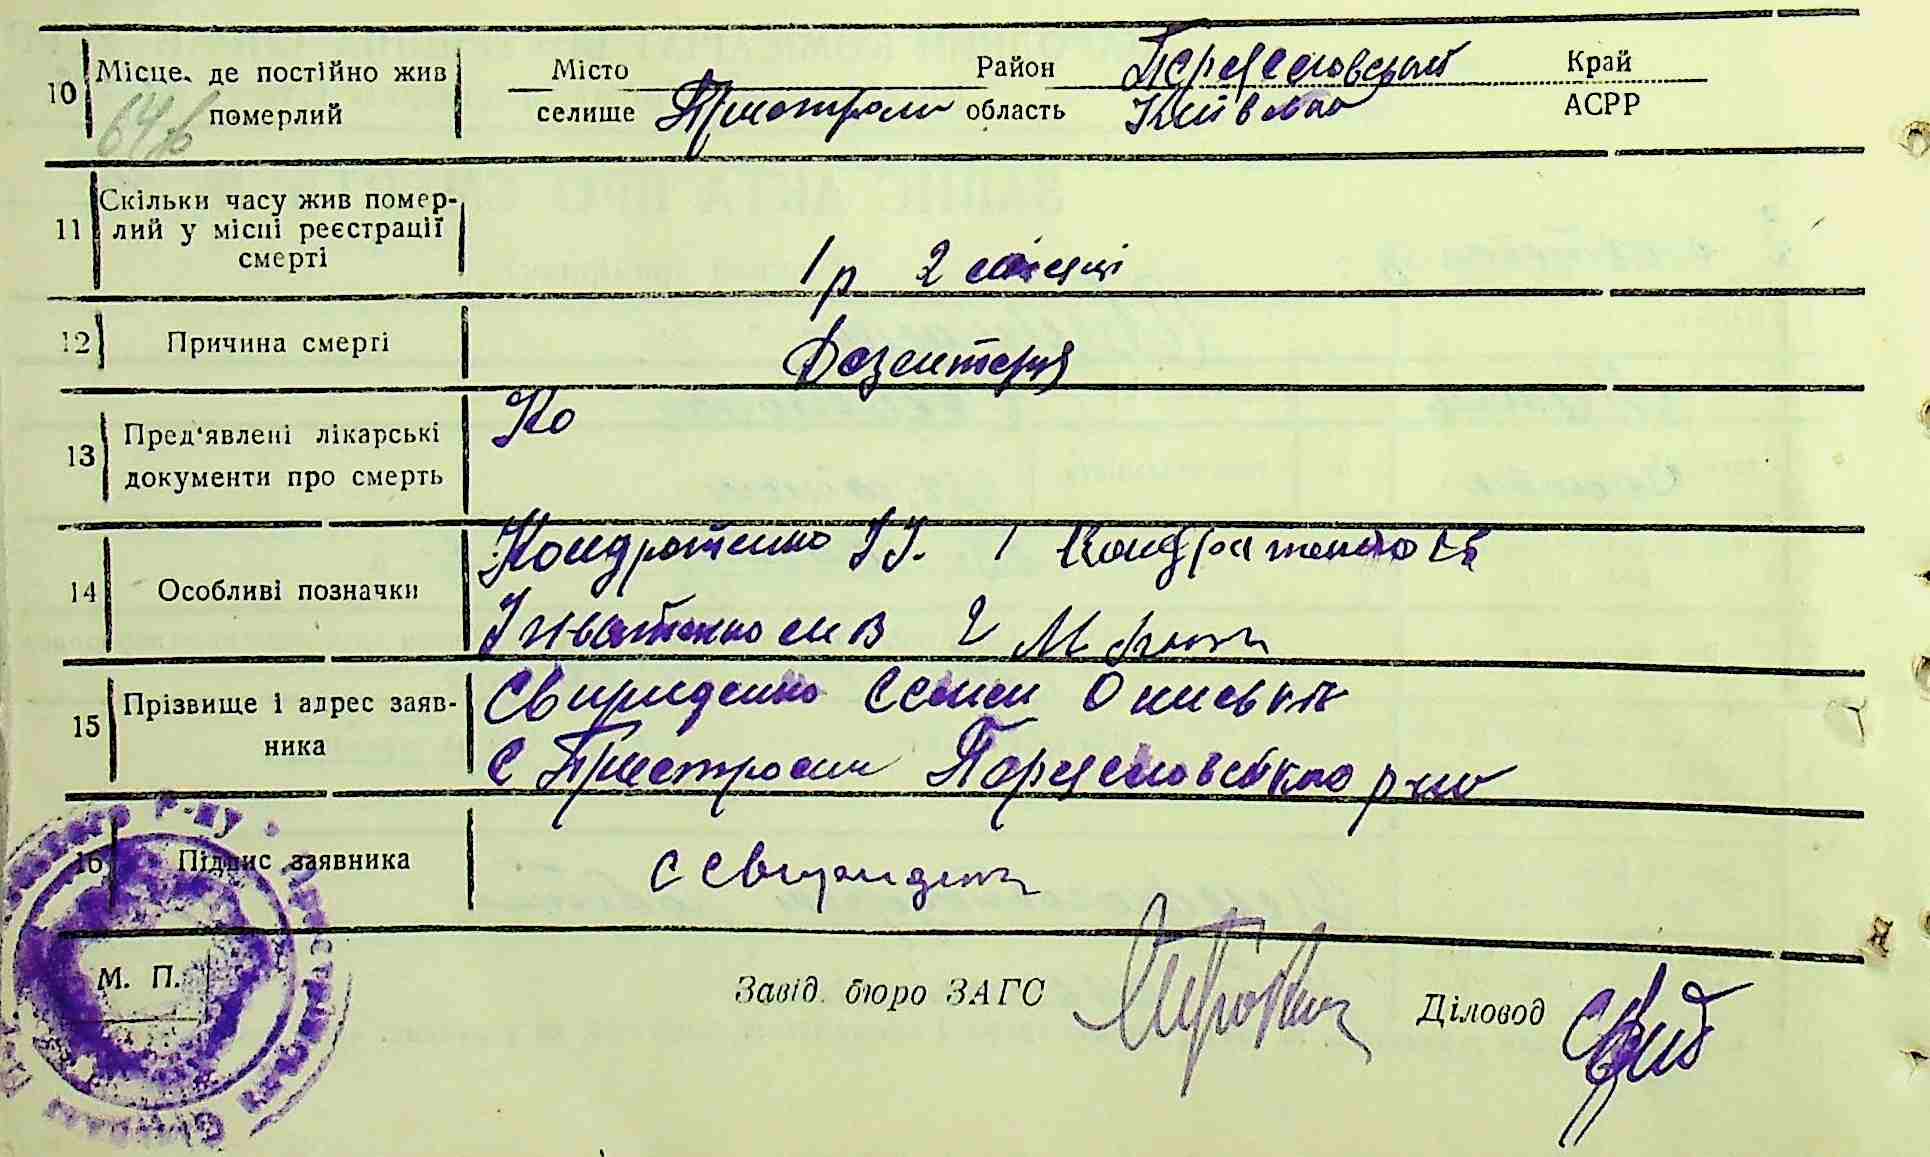 10 Місце, де постійно жив померлий
64 р
Місто селище Пристроми
Район область Переяславський Київська
Край АСРР
11 Скільки часу жив помер-
лий у місці реєстрації
смерті
1 р 2 місяці
12 Причина смерті
Дезентерія
13 Пред'явлені лікарські
документи про смерть
14 Особливі позначки
Кондратенко 1 Кондратенко
Ігнатенко 2
15 Прізвище і адрес заяв-
ника
Свириденко Семен
с Пристроми р-ну
16 Підпис заявника
М. П.
Завід. бюро ЗАГС
Діловод